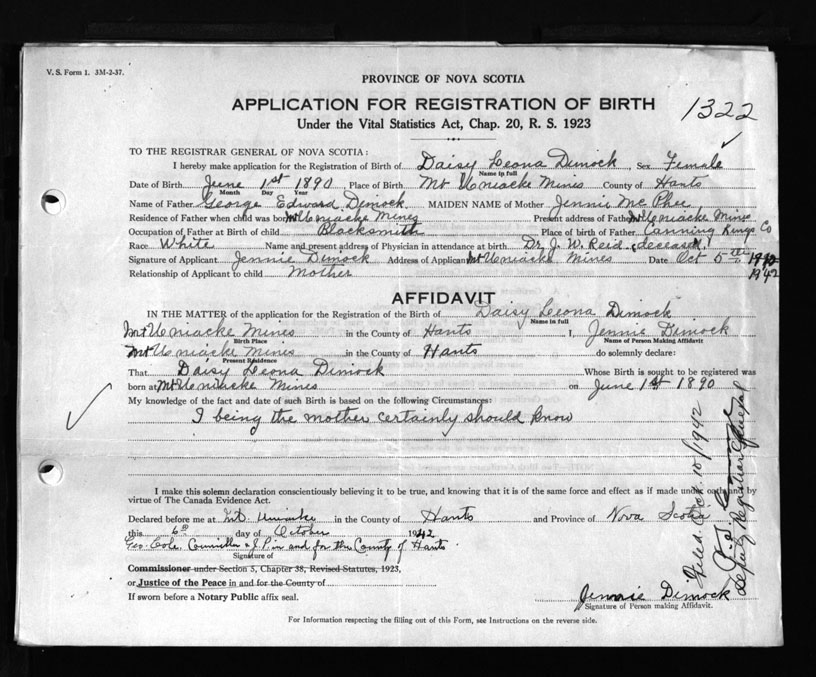 V. S. Form 1. 3M-2-37.
PROVINCE OF NOVA SCOTIA
APPLICATION FOR REGISTRATION OF BIRTH
1322
Under the Vital Statistics Act, Chap. 20, R. S. 1923
TO THE REGISTRAR GENERAL OF NOVA SCOTIA:
I hereby make application for the Registration of Birth of Daisy Leona Dimock, Sex Female
Name in full
Date of Birth June 1st 1890 Place of Birth Mt Uniacke Mines County of Hants
Month Day Year
Name of Father George Edward Dimock MAIDEN NAME of Mother Jennie McPhee
Residence of Father when child was born Mt Uniacke Mines Present address of Father Mt Uniacke Mines
Occupation of Father at Birth of child Blacksmith Place of birth of Father Canning Kings Co
Race White Name and present address of Physician in attendance at birth Dr J. W. Reid (deceased)
Signature of Applicant Jennie Dimock Address of Applicant Mt Uniacke Mines Date Oct 5th
1942
Relationship of Applicant to child Mother
AFFIDAVIT
IN THE MATTER of the application for the Registration of the Birth of Daisy Leona Dimock
Name in full
Mt Uniacke Mines in the County of Hants I, Jennie Dimock
Birth Place Name of Person Making Affidavit
Mt Uniacke Mines in the County of Hants do solemnly declare:
Present Residence
That Daisy Leona Dimock Whose Birth is sought to be registered was
born at Mt Uniacke Mines on June 1st 1890
My knowledge of the fact and date of such Birth is based on the following Circumstances:
I being the mother certainly should know
I make this solemn declaration conscientiously believing it to be true, and knowing that it is of the same force and effect as if made under oath and by
virtue of The Canada Evidence Act.
Declared before me at Mt. Uniacke in the County of Hants and Province of Nova Scotia
this 6th day of October 1942
Geo. Cole, Councillor & J.P. in and for the County of Hants.
Signature of
Commissioner under Section 5, Chapter 38, Revised Statutes, 1923,
or Justice of the Peace in and for the County of
If sworn before a Notary Public affix seal.
Jennie Dimock
Signature of Person making Affidavit.
For Information respecting the filling out of this Form, see Instructions on the reverse side.
Filed Oct. 10/1942
Deputy Registrar General